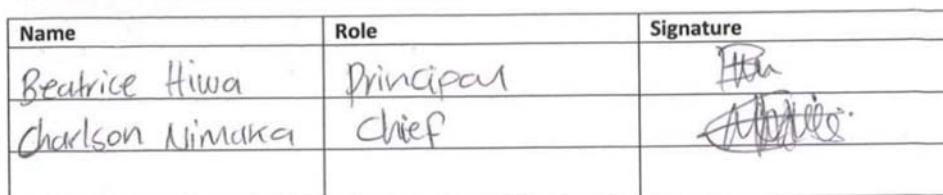 Name Role Signature
Beatrice Hiwa Principal
Charlson Nimaka Chief